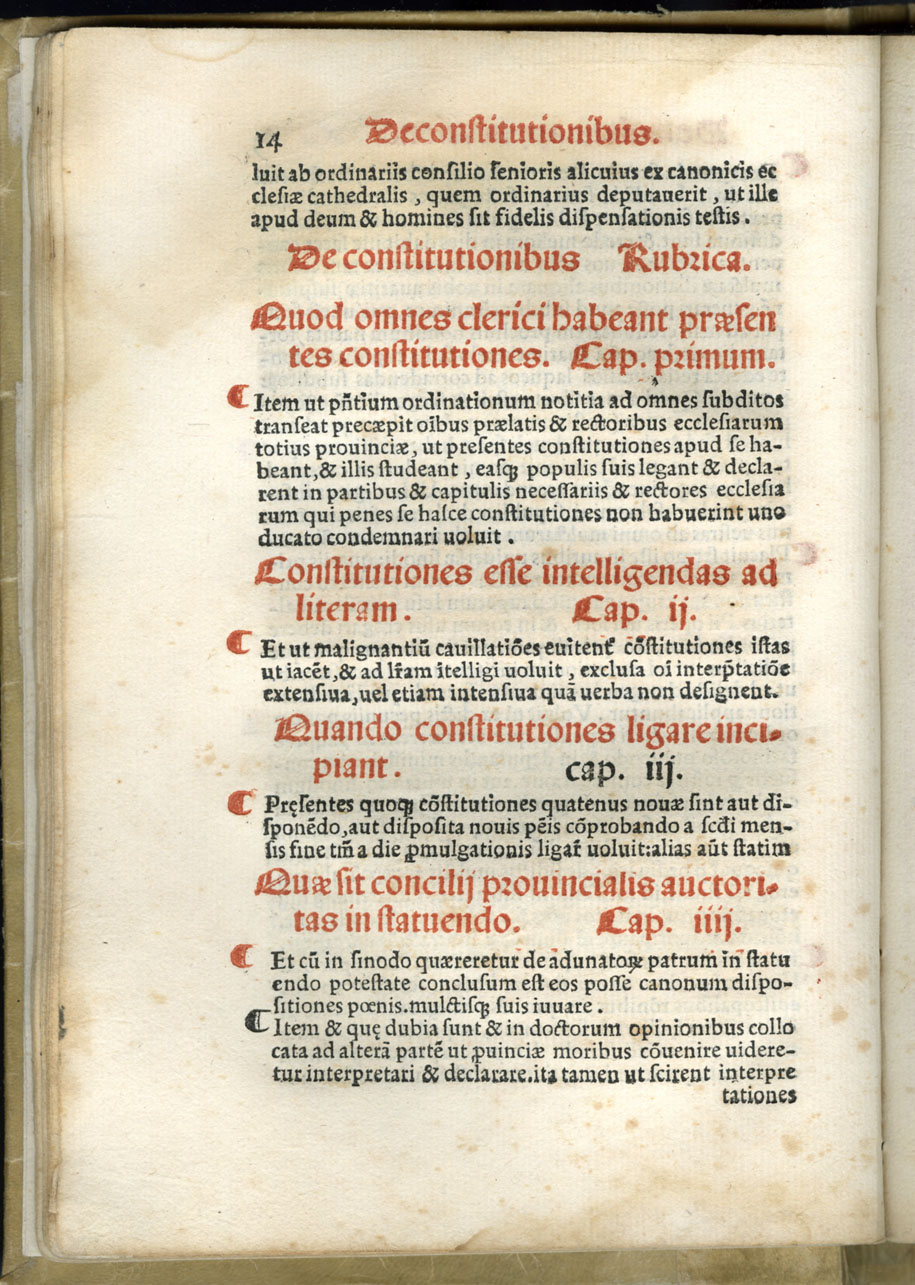 14 Deconstitutionibus.
luit ab ordinariis consilio senioris alicuius ex canonicis ec
clesiæ cathedralis, quem ordinarius deputauerit, ut ille
apud deum & homines sit fidelis dispensationis testis.
De constitutionibus Rubrica.
Quod omnes clerici habeant præsen
tes constitutiones. Cap. primum.
¶ Item ut pñtium ordinationum notitia ad omnes subditos
transeat precæpit oĩbus prælatis & rectoribus ecclesiarum
totius prouinciæ, ut presentes constitutiones apud se ha-
beant, & illis studeant, easqꝫ populis suis legant & decla-
rent in partibus & capitulis necessariis & rectores ecclesia
rum qui penes se hasce constitutiones non habuerint uno
ducato condemnari uoluit.
Constitutiones esse intelligendas ad
literam. Cap. ij.
¶ Et ut malignantiũ cauillatiões euitent᷑ cõstitutiones istas
ut iacẽt, & ad lr̃am ĩtelligi uoluit, exclusa oĩ interp̃tatiõe
extensiua, uel etiam intensiua quã uerba non designent.
Quando constitutiones ligare inci-
piant. cap. iij.
¶ Pręsentes quoqꝫ cõstitutiones quatenus nouæ sint aut di-
sponẽdo, aut disposita nouis pẽis cõprobando a scd̃i men-
sis fine tm̃ a die ꝓmulgationis ligar̃ uoluit: alias aũt statim
Quæ sit concilij prouincialis auctori-
tas in statuendo. Cap. iiij.
¶ Et cũ in sinodo quæreretur de adunatoꝝ patrum in statu
endo potestate conclusum est eos posse canonum dispo-
sitiones pœnis. mulctisqꝫ suis iuuare.
¶ Item & quę dubia sunt & in doctorum opinionibus collo
cata ad alterã partẽ ut ꝓuinciæ moribus cõuenire uidere-
tur interpretari & declarare. ita tamen ut scirent interpre
tationes